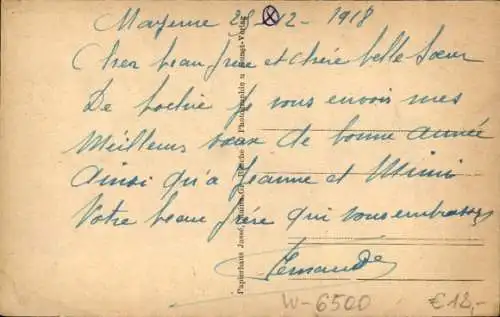 Mayenne 28-12-1918
Cher beau frère et chère belle Sœur
De je vous envois mes
Meilleurs vœux de bonne année
Ainsi qu'a Jeanne et Mimi
Votre beau frère qui vous embrasse
Fernande
Papierhaus Photographie u Kunst-Verlag
W-6500
€12,-